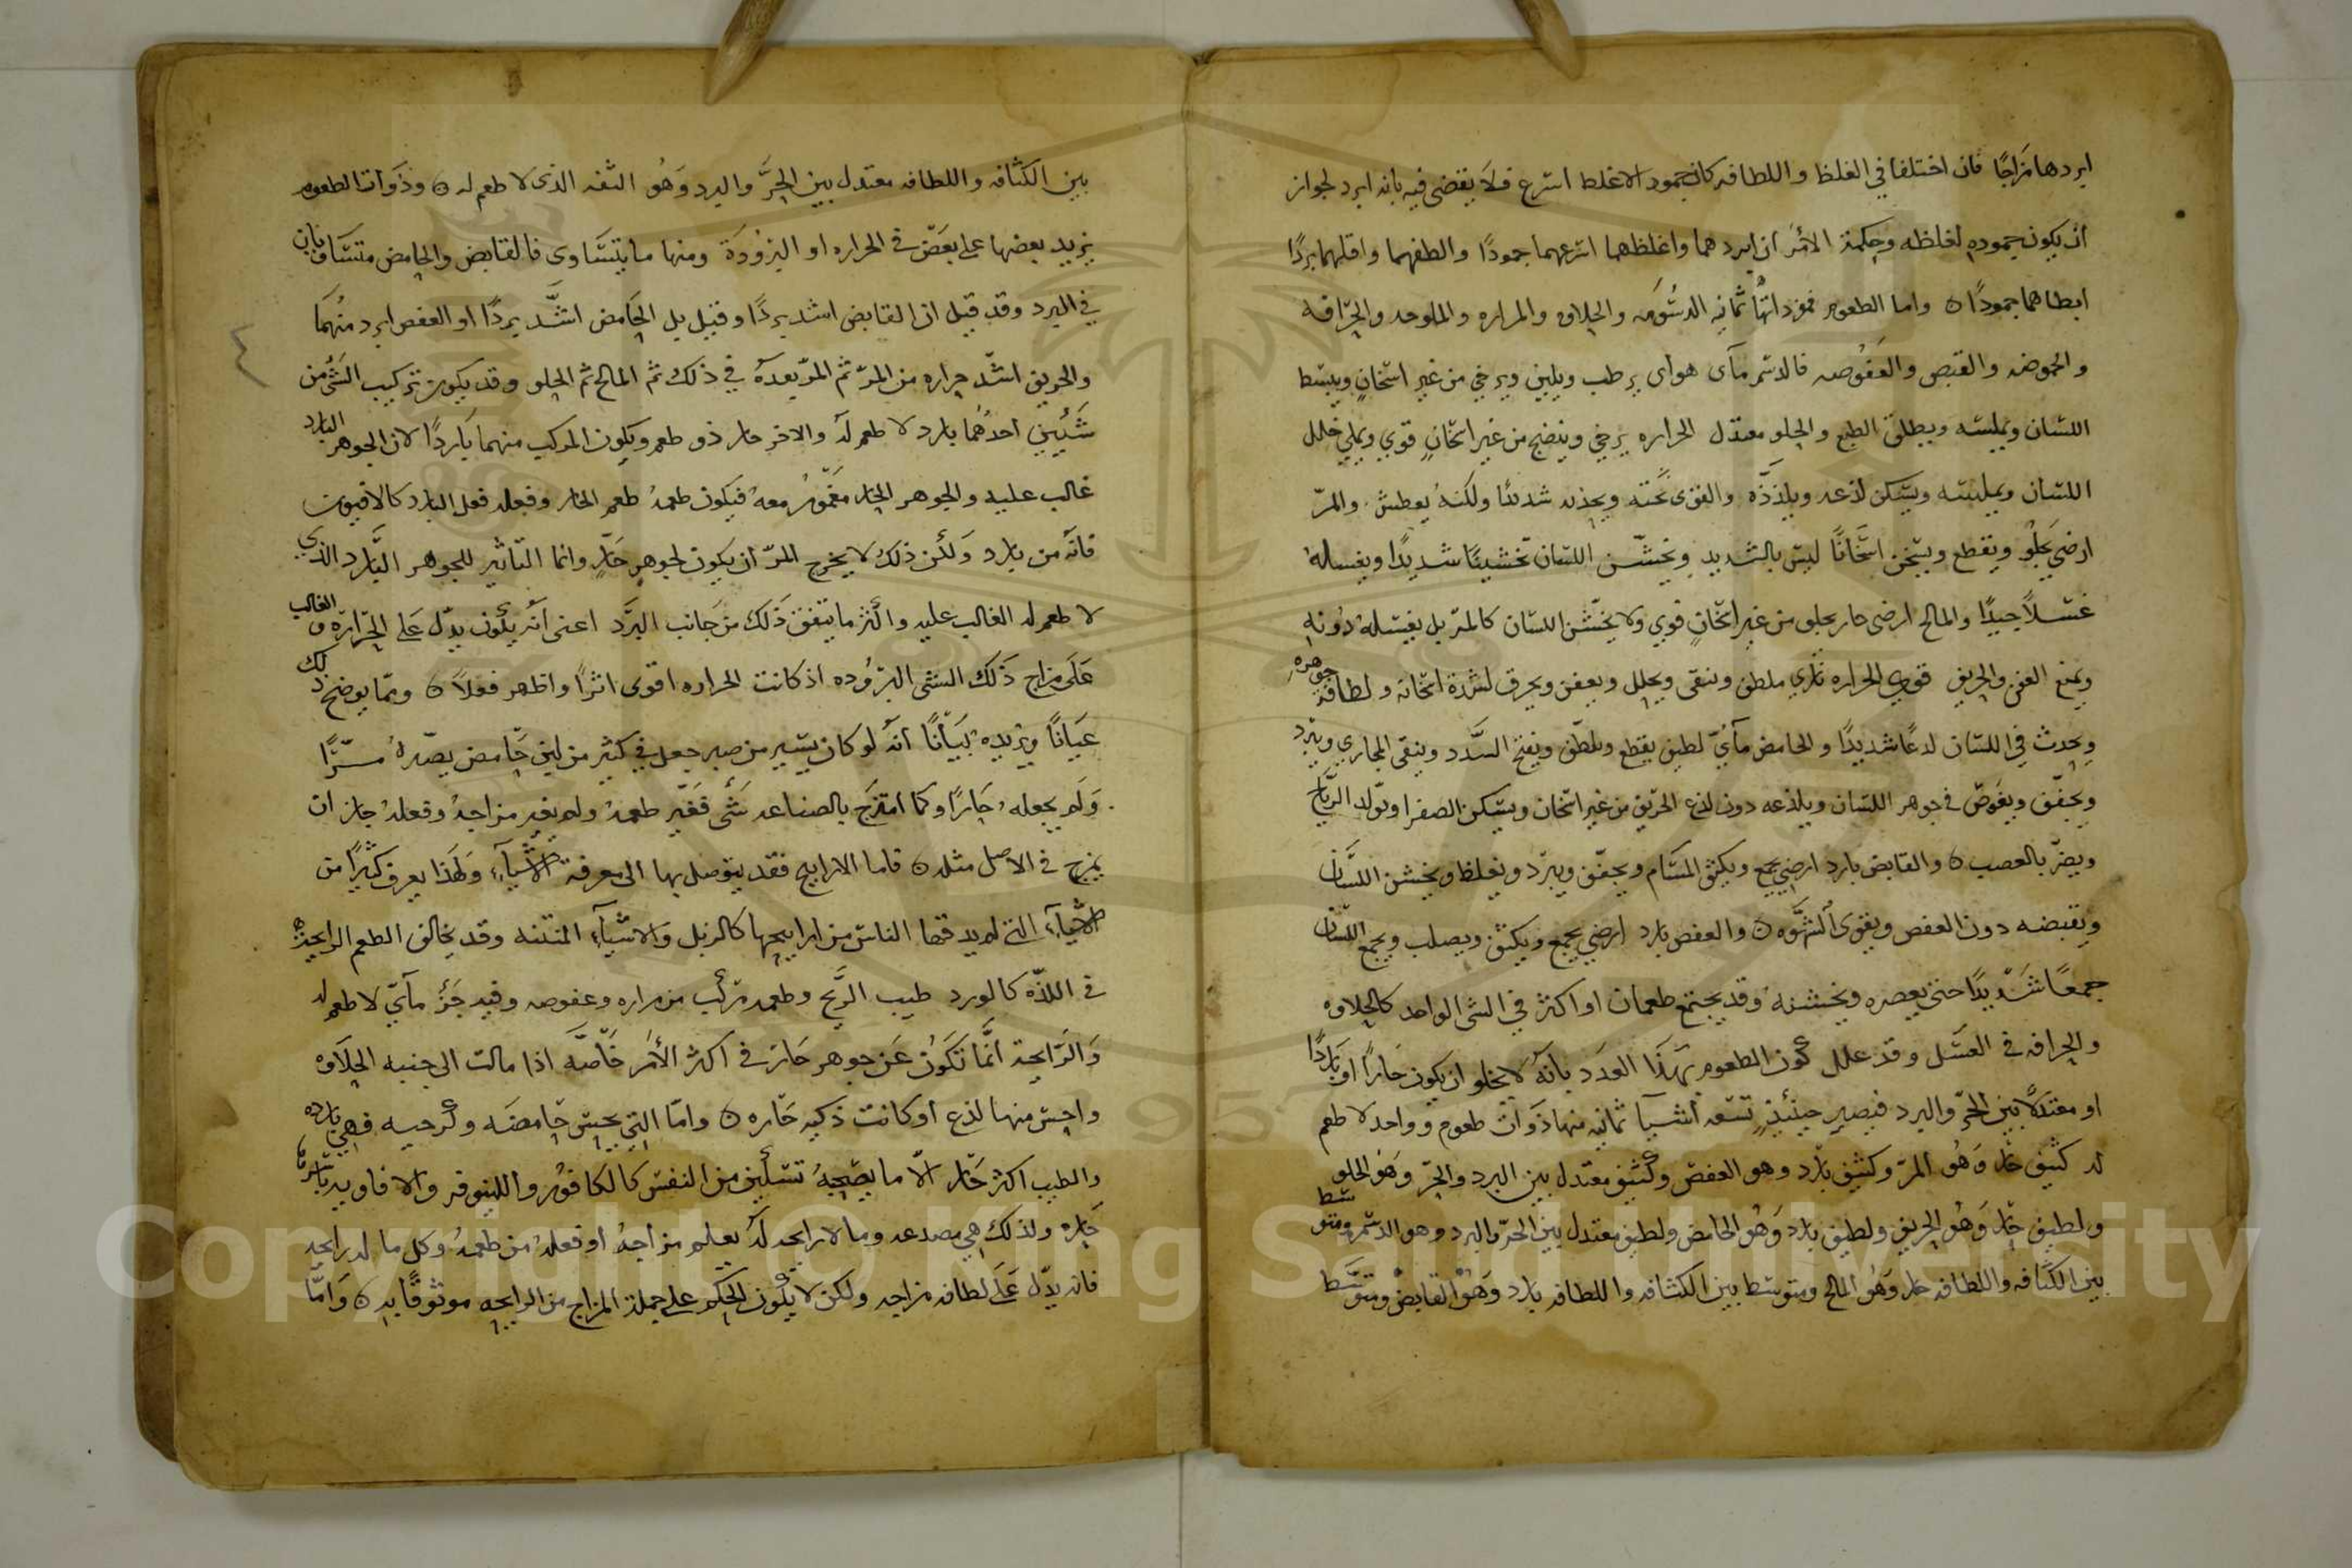 ابردها مزاجًا فان اختلفا في الغلظ واللطافه كان جمود الاغلظ اسرع فلا يقضى فيه بانه ابرد لجواز
ان يكون جموده لغلظه وحكمة الامر ان ابردهما واغلظهما اسرعهما جمودًا والطفهما واقلهما بردًا
ابطاهما جمودًا ۝ واما الطعوم فمفرداتها ثمانيه الدسومه والحلاوه والمراره والملوحه والحرافه
والحموضه والقبض والعفوصه فالدسم مآى هواى يرطب ويلين ويرخي من غير اسخانٍ ويبسط
اللسان ويملسه ويطلق الطبع والحلو معتدل الحراره يرخي وينضج من غير اسخانٍ قوي ويملي خلل
اللسان ويمليسه ويسكن لذعه ويلذذه والقوى تحبه ويجذبه شديدًا ولكنه يعطش والمرّ
ارضي يجلو ويقطع ويسخن اسخانًا ليس بالشديد ويخشّن اللسان تخشينًا شديدًا ويغسله
غسلًا جيدًا والمالح ارضى حار يجلو من غير اسخانٍ قوي ولا يخشّن اللسان كالمرّ بل يغسله دونه
ويمنع العفن والحريف قوي الحراره ناري ملطف وينقى ويحلل ويعفن ويحرق لشدة اسخانه ولطافة جوهره
ويحدث في اللسان لدعًا شديدًا والحامض مآئيّ لطيف يقطع ويلطّف ويفتح السّدد وينقى المجاري ويبرد
ويجفّف ويغوص في جوهر اللسان ويلذعه دون لذع الحرّيف من غير اسخان ويسكن الصفرا ويولد الرياح
ويضرّ بالعصب ۝ والقابض بارد ارضي يجمع ويكثف المسّام ويجفّف ويبرّد ويغلظ ويخشن اللسّان
ويقبضه دون العفص ويقوى الشهوه ۝ والعفص بارد ارضي يجمع ويكثف ويصلب ويجمع اللسان
جمعًا شديدًا حتى يعصره ويخشنه وقد يجتمع طعمان او اكثر في الشى الواحد كالحلاوه
والحرافه في العسل وقد علل كون الطعوم بهذا العدد بانه لا يخلو ان يكون حارًا او باردًا
او معتدلًا بين الحرّ والبرد فيصير حينئذٍ تسعه أشيآ ثمانيه منها ذوات طعوم وواحد لا طعم
له كثيف حار وهو المرّ وكثيف بارد وهو العفص وكثيف معتدل بين البرد والحرّ وهو الحلو
ولطيف حار وهو الحريف ولطيف بارد وهو الحامض ولطيف معتدل بين الحرّ والبرد وهو الدسم ومتوسط
بين الكثافه واللطافه حار وهو المالح ومتوسط بين الكثافه واللطافه بارد وهو القابض ومتوسّط
بين الكثافه واللطافه معتدل بين الحرّ والبرد وهو التفه الذى لا طعم له ۝ وذوات الطعوم
يزيد بعضها على بعض في الحراره او البرودة ومنها ما يتساوى فالقابض والحامض متساويان
في البرد وقد قيل ان القابض اشد بردًا وقيل بل الحامض اشّد بردًا او العفص ابرد منهما
والحريف اشدّ حراره من المرّ ثم المرّ بعده في ذلك ثم المالح ثم الحلو وقد يكون تركيب الشئ من
شيئين احدهما بارد لا طعم له والاخر حار ذو طعم ويكون المركب منهما باردًا لان الجوهر البارد
غالب عليه والجوهر الحار مغمور معه فيكون طعمه طعم الحار وفعله فعل البارد كالافيون
فانه مر بارد ولكن ذلك لا يخرج المرّ ان يكون لجوهر حارٍّ وانما التاثير للجوهر البارد الذي
لا طعم له الغالب عليه واكثر ما يتفق ذلك من جانب البرد اعنى انه يكون يدّل على الحرارة والغالب
على مزاج ذلك الشى البروده اذ كانت الحراره اقوى اثرًا واظهر فعلًا ۝ وممّا يوضح ذلك
عيانًا ويزيده بيانًا انه لو كان يسير من صبر جعل في كثير من لبن حامض يصيّره مُرًّا
ولم يجعله حارًا وكما امتزج بالصناعه شى فغيّر طعمه ولم يغير مزاجه وفعله جاز ان
يمزج في الاصل مثله ۝ فاما الارايح فقد يتوصل بها الى معرفة الاشيآء ولهذا يعرف كثيرًا من
الاشيآء التى لم يدقها الناس من ارايحها كالزبل والاشيآء المنتنه وقد يخالف الطعم الرايحة
في اللذّه كالورد طيب الرّيح وطعمه مركّب من مراره وعفوصه وفيه جزؤ مآئي لا طعم له
والرّايحة انّما تكون عن جوهر حار في اكثر الأمر خاصّه اذا مالت الى جنبه الحلاوه
واحس منها لذع او كانت ذكيه حاره ۝ وامّا التي يحس حامضه وكرجيه فهي بارده
والطيب اكثره حار الّا ما يصحبه تسكين من النفس كالكافور واللينوفر والافاويه باسرها
حاره ولذلك هي مصدعه وما لا رايحه له يعلم مزاجه او فعله من طعمه وكل ما له رايحه
فانه يدّل على لطافه مزاجه ولكن لا يكون الحكم على جملة المزاج من الرايحه موثوقًا به ۝ وامّا
٤
Copyright © King Saud University
1957